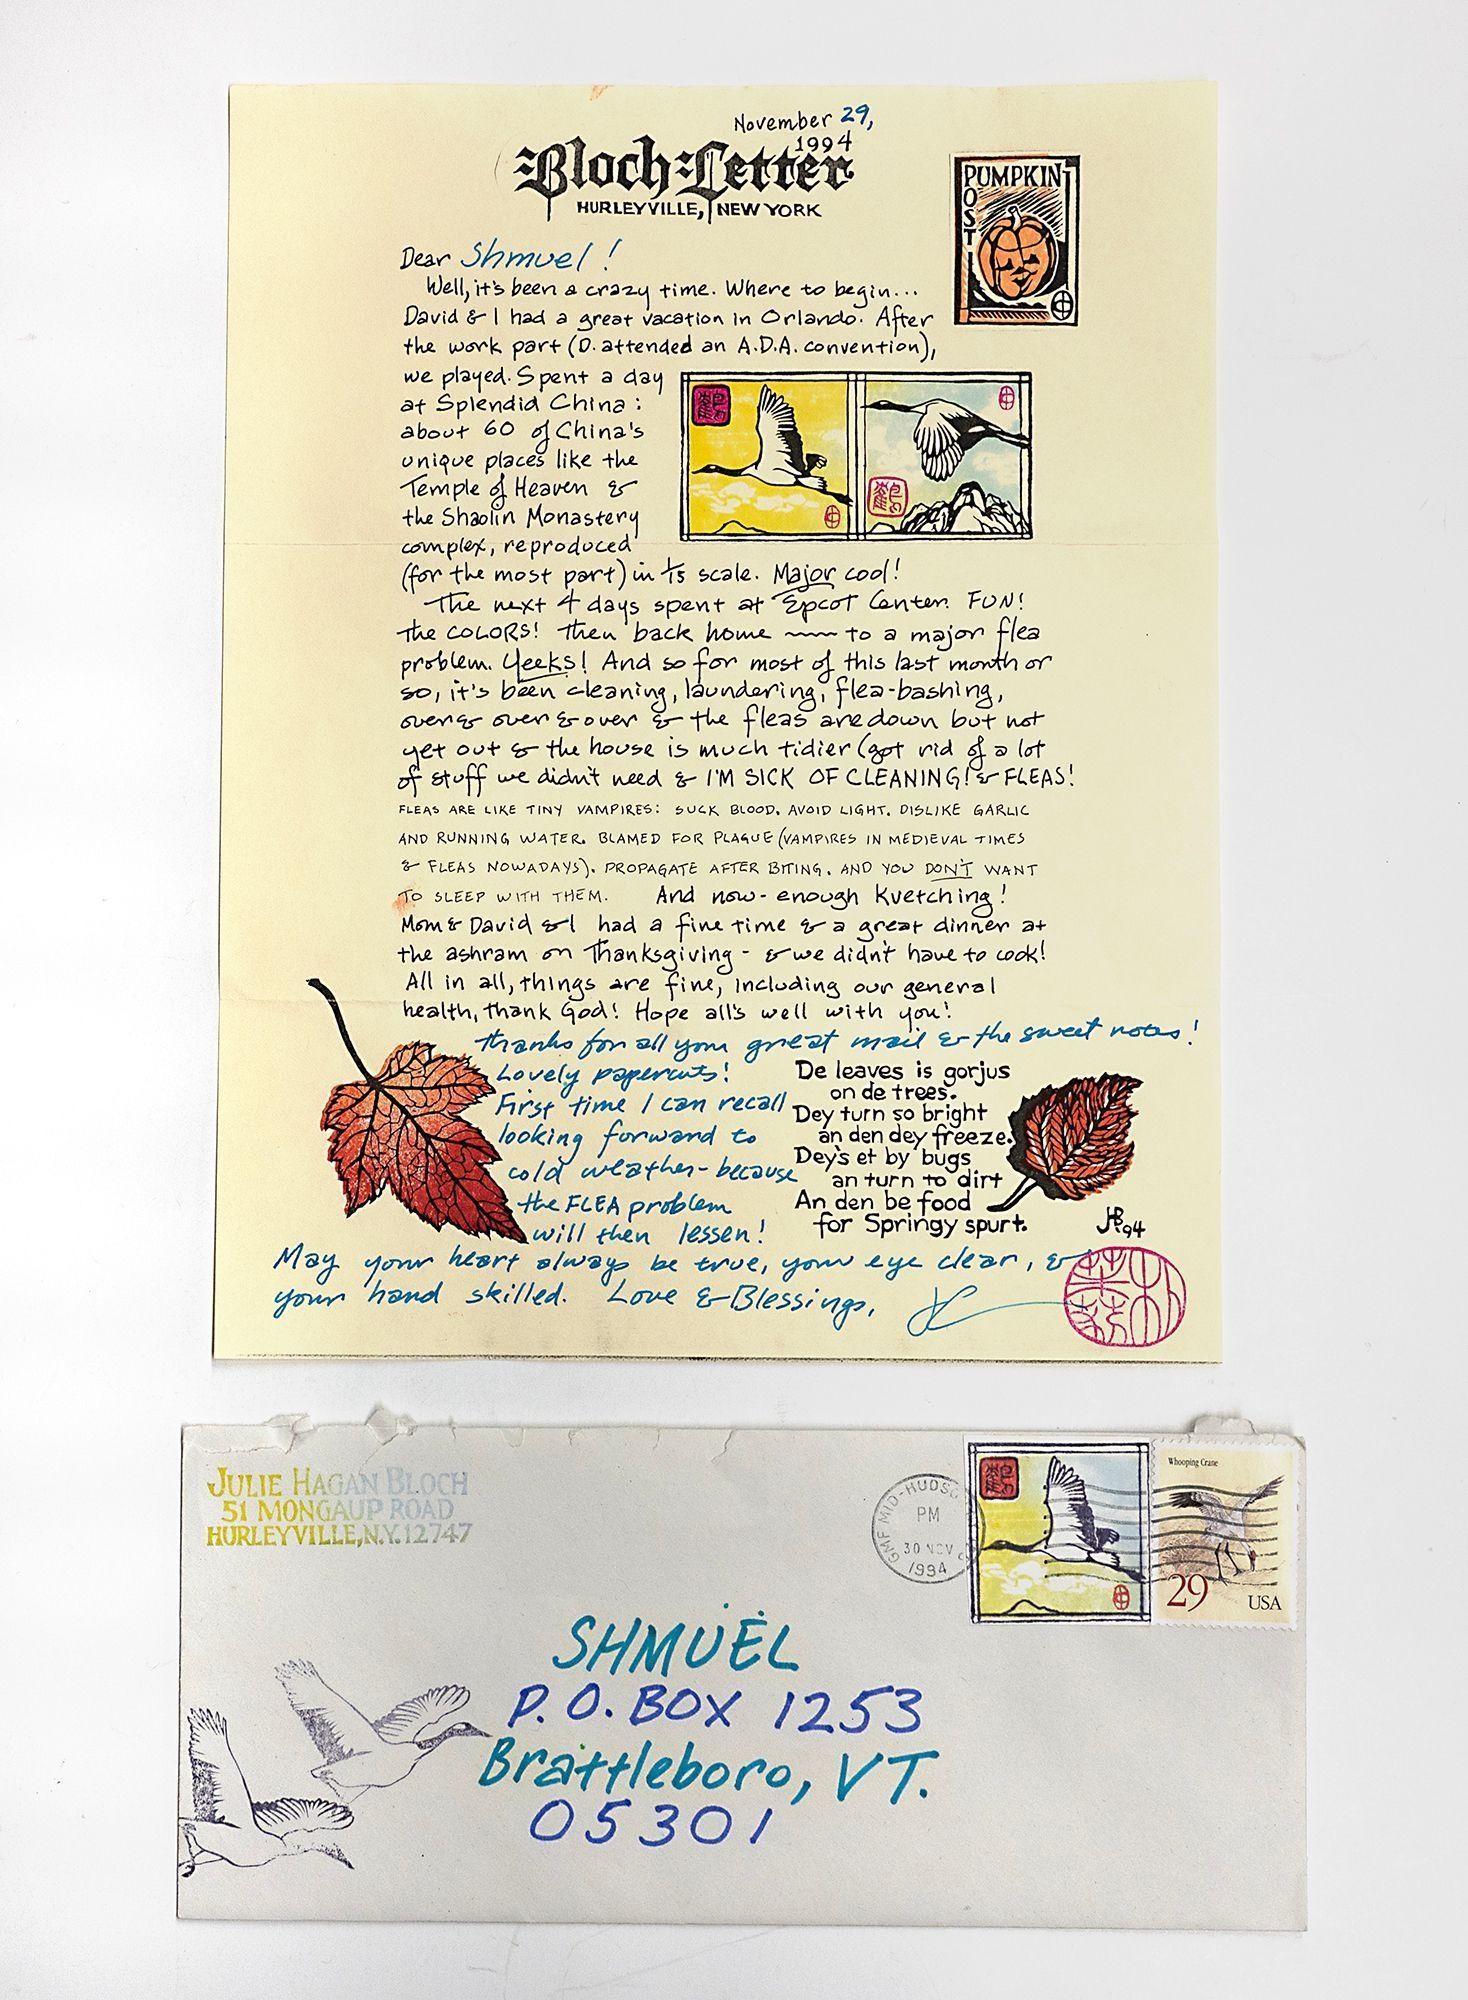 November 29,
1994
Bloch-Letter
HURLEYVILLE, NEW YORK
PUMPKIN
POST
Dear Shmuel!
Well, it's been a crazy time. Where to begin...
David & I had a great vacation in Orlando. After
the work part (D. attended an A.D.A. convention),
we played. Spent a day
at Splendid China:
about 60 of China's
unique places like the
Temple of Heaven &
the Shaolin Monastery
complex, reproduced
(for the most part) in 1/15 scale. Major cool!
鶴
鶴
The next 4 days spent at Epcot Center. FUN!
The COLORS! Then back home ~~~ to a major flea
problem. Yeeks! And so for most of this last month or
so, it's been cleaning, laundering, flea-bashing,
over & over & over & the fleas are down but not
yet out & the house is much tidier (got rid of a lot
of stuff we didn't need & I'M SICK OF CLEANING! & FLEAS!
FLEAS ARE LIKE TINY VAMPIRES: SUCK BLOOD. AVOID LIGHT. DISLIKE GARLIC
AND RUNNING WATER. BLAMED FOR PLAGUE (VAMPIRES IN MEDIEVAL TIMES
& FLEAS NOWADAYS). PROPAGATE AFTER BITING. AND YOU DON'T WANT
TO SLEEP WITH THEM. And now - enough Kvetching!
Mom & David & I had a fine time & a great dinner at
the ashram on Thanksgiving - & we didn't have to cook!
All in all, things are fine, including our general
health, thank God! Hope all's well with you!
Thanks for all your great mail & the sweet notes!
Lovely papercuts!
First time I can recall
looking forward to
cold weather - because
the FLEA problem
will then lessen!
De leaves is gorjus
on de trees.
Dey turn so bright
an den dey freeze.
Dey's et by bugs
an turn to dirt
An den be food
for Springy spurt.
JHB 94
May your heart always be true, your eye clear, &
your hand skilled. Love & Blessings,
JULIE HAGAN BLOCH
51 MONGAUP ROAD
HURLEYVILLE, N.Y. 12747
GMF MID-HUDSO
PM
30 NOV
1994
鶴
Whooping Crane
29
USA
SHMUEL
P.O. BOX 1253
Brattleboro, VT.
05301